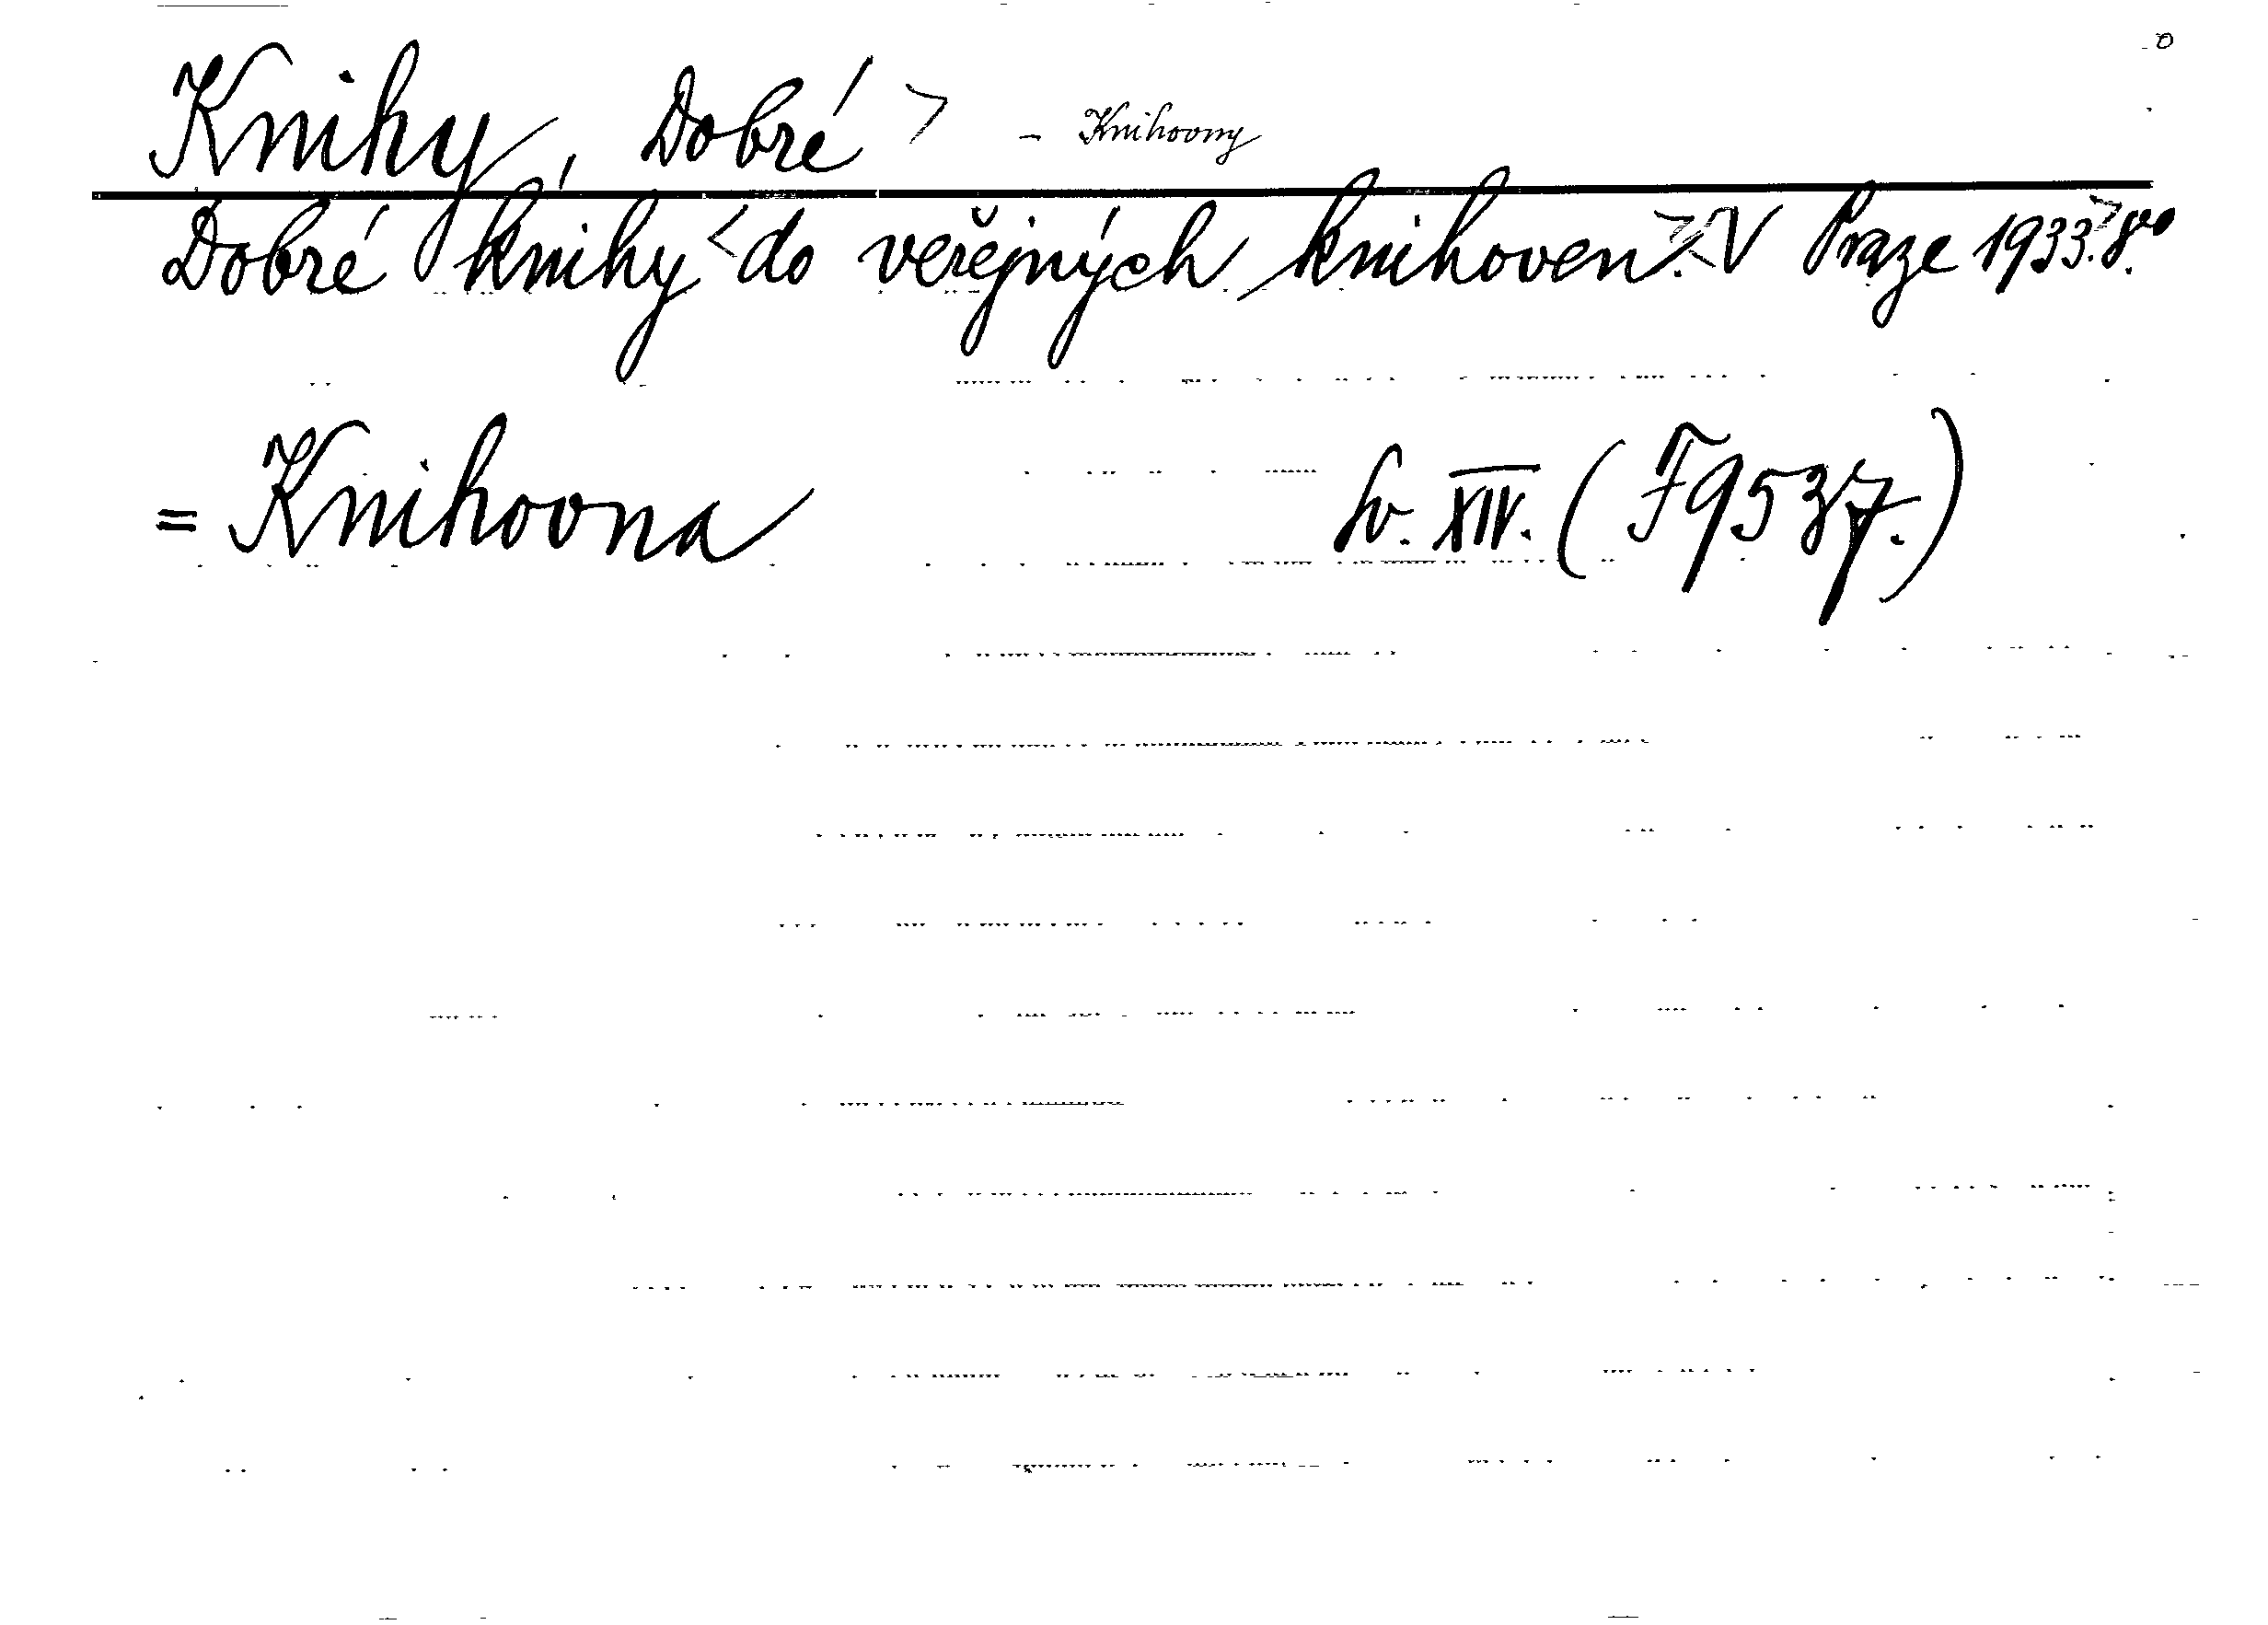 Knihy, Dobré > - Knihovny
Dobré knihy < do veřejných knihoven >. < V Praze 1933. > 8.vo
= Knihovna Sv. XIV. (F 9537.)